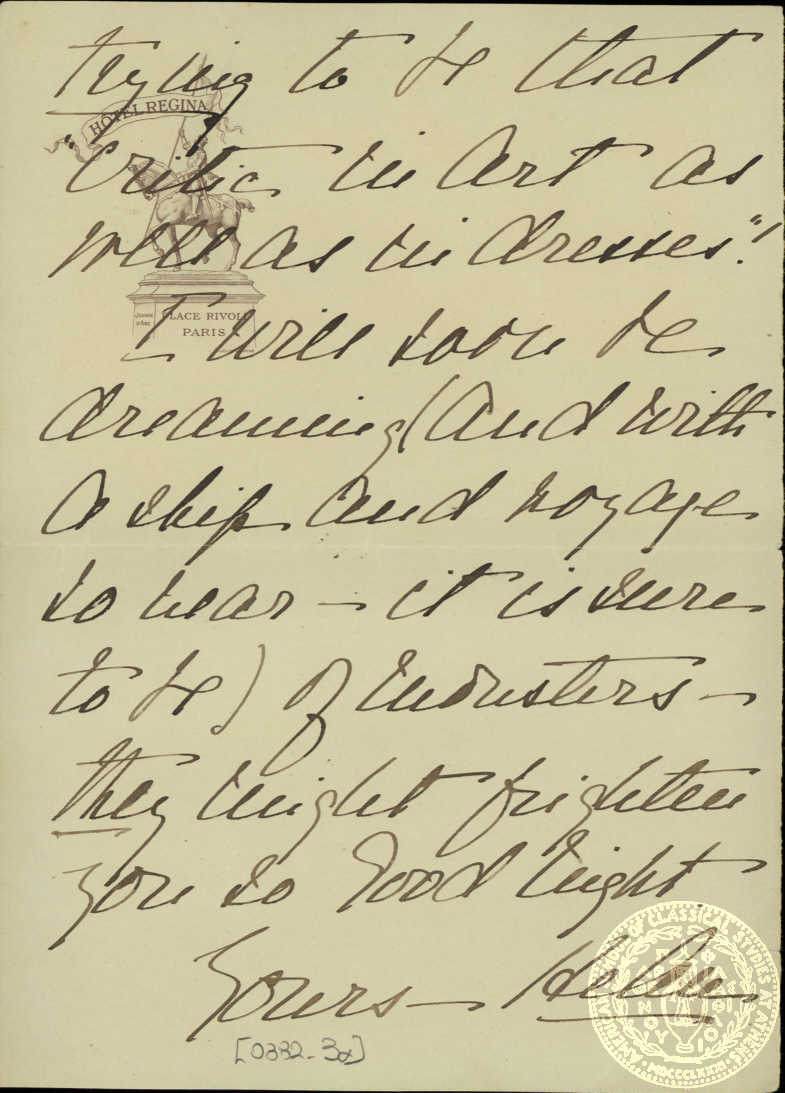 trying to be that
HOTEL REGINA
"Critic in Art as
well as in dresses".!
JEANNE D'ARC
PLACE RIVOLI
PARIS
I will soon be
dreaming (and with
a ship and voyage
so near — it is sure
to be) of monsters —
they might frighten
you so Good night
Yours —
[0382-3α]
AMERICAN SCHOOL OF CLASSICAL STUDIES AT ATHENS
MDCCCLXXXI